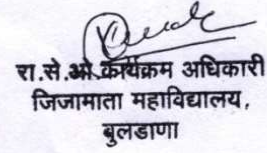 रा.से.यो.कार्यक्रम अधिकारी
जिजामाता महाविद्यालय,
बुलडाणा